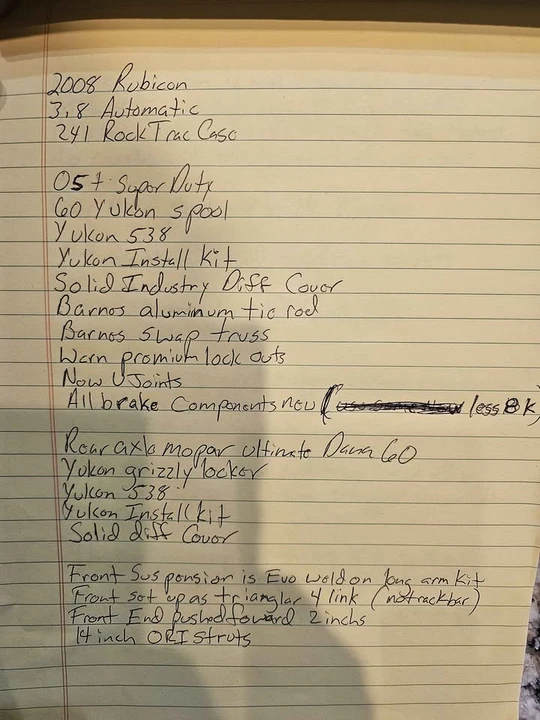 2008 Rubicon
3.8 Automatic
241 RockTrac Case
05+ Super Duty
60 Yukon spool
Yukon 538
Yukon Install kit
Solid Industry Diff Cover
Barnes aluminum tie rod
Barnes swap truss
Warn premium lock outs
New UJoints
All brake Components new ( less 8k)
Rear axle mopar ultimate Dana 60
Yukon grizzly locker
Yukon 538
Yukon Install kit
Solid diff Cover
Front Suspension is Evo weld on long arm kit
Front set up as trianglar 4 link (no trackbar)
Front End pushed foward 2 inchs
14 inch ORI struts